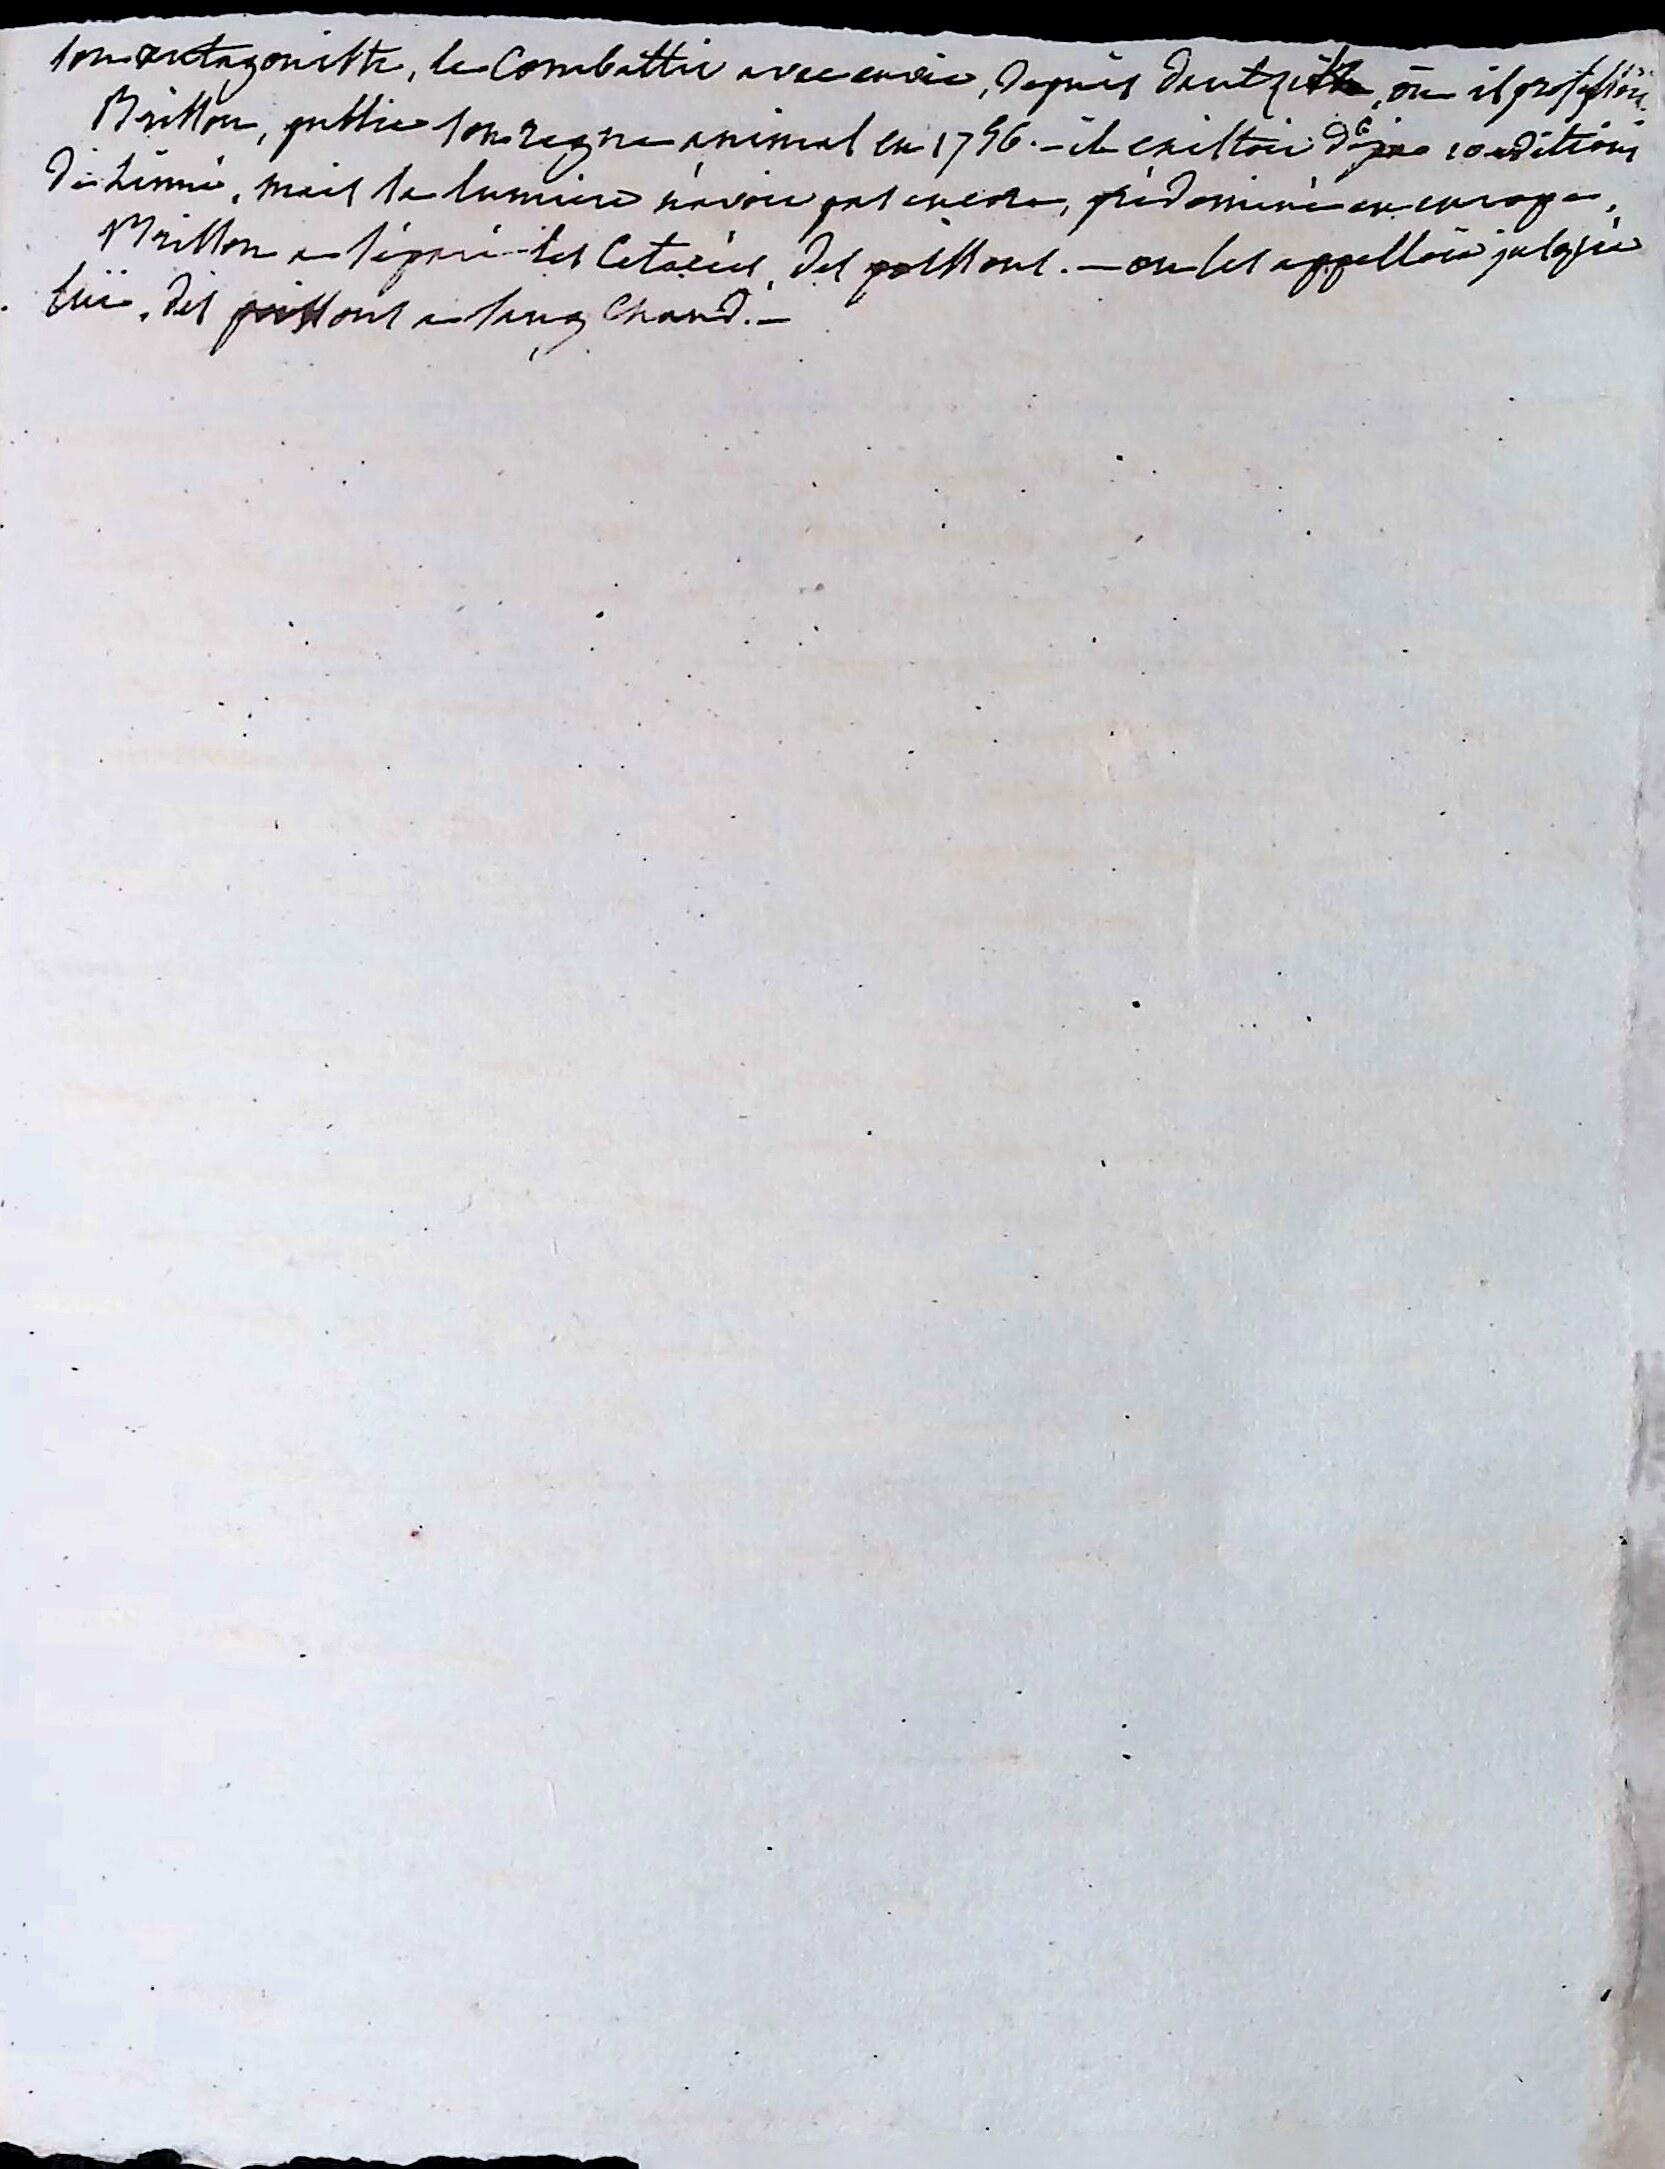 son antagoniste, le Combattit avec envie, depuis dantzik, où il professoit.
Brisson, publia son regne animal en 1756. - il existoit déja 10 editions
de Linné, mais la lumiere n'avoit pas encore, prédominé en europe.
Brisson a séparé les Cetacés, des poissons. - on les appelloit jusqu'à
lui, des poissons a sang chaud. -